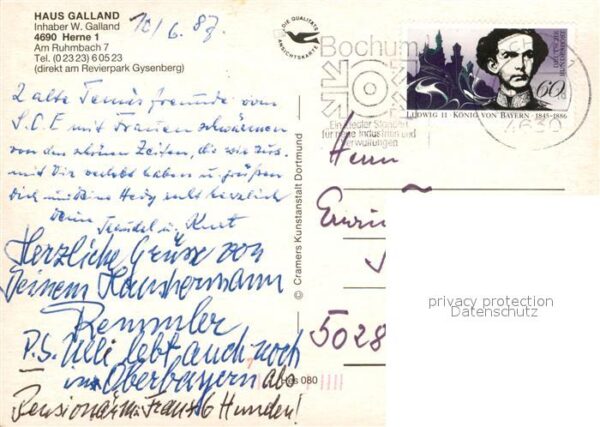 HAUS GALLAND
Inhaber W. Galland
4690 Herne 1
Am Ruhmbach 7
Tel. (0 23 23) 6 05 23
(direkt am Revierpark Gysenberg)
10/6. 87
2 alte Tennisfreunde vom
S.C.E mit Frauen schwärmen
von den schönen Zeiten, die wir zus.
mit Dir verlebt haben u. grüßen
Dich und Deine Hedy recht herzlich
Deine Traudel u. Kurt
Herzliche Grüsse von
Deinem Hans Hermann
Remmler
P.S. Ulli lebt auch noch
im Oberbayern als
Pensionär mit Frau + 6 Hunden!
DIE QUALITÄTS
ANSICHTSKARTE
© Cramers Kunstanstalt Dortmund
Hs 080
Bochum
Ein idealer Standort
für neue Industrien und
Verwaltungen
4630
DEUTSCHE BUNDESPOST
60
LUDWIG II · KÖNIG VON BAYERN · 1845-1886
Herrn
Erwin
5028
privacy protection
Datenschutz